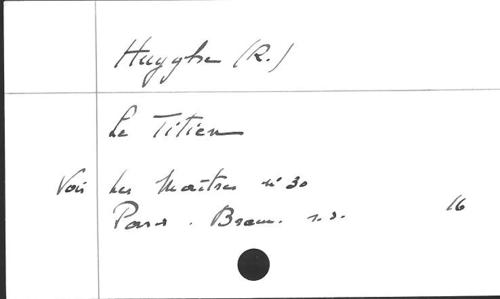 Huyghe (R.)
Le Titien
Voir Les Maîtres n° 30
Paris. Braun. s.d. 16